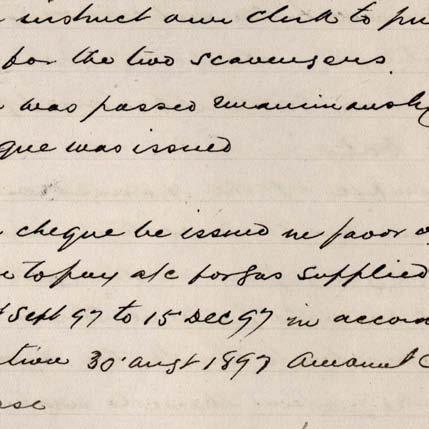 instruct our clerk to
for the two scavengers
was passed unanimously
que was issued
cheque be issued in favor
to pay a/c for gas supplied
Sept 97 to 15 Dec 97 in accord
tion 30 augt 1897 Amount